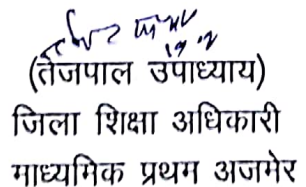 (तेजपाल उपाध्याय)
जिला शिक्षा अधिकारी
माध्यमिक प्रथम अजमेर